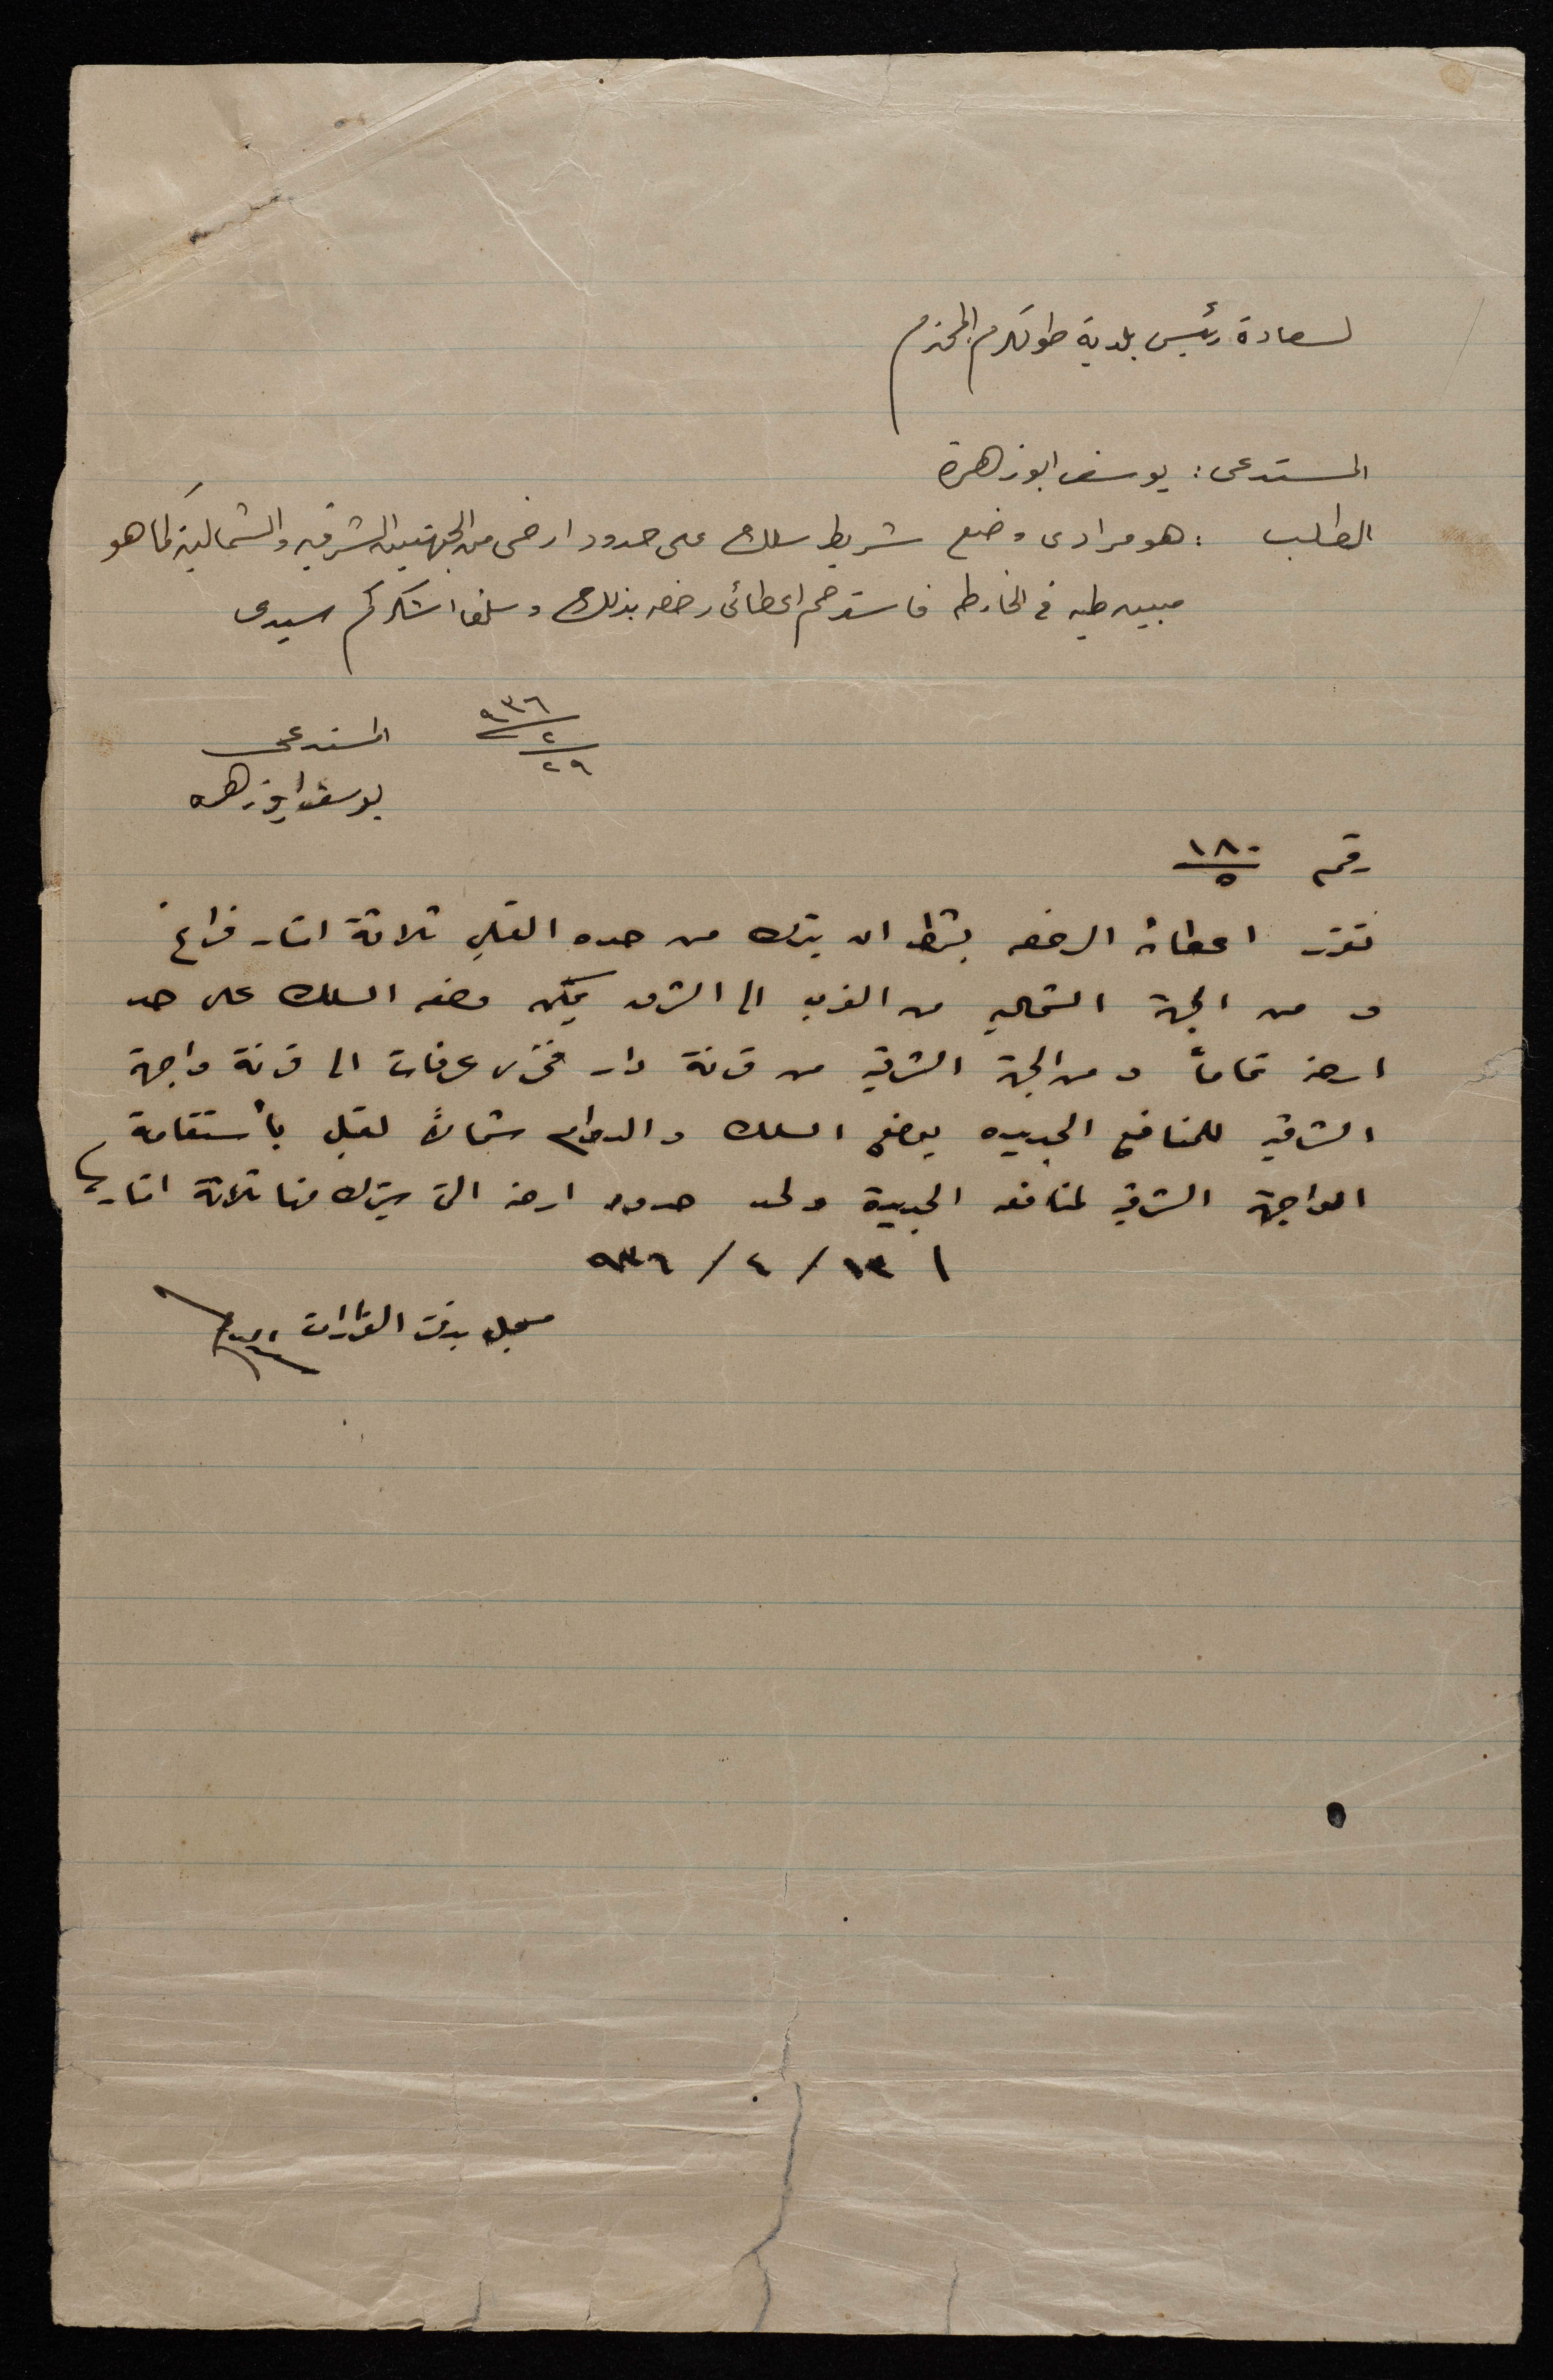 لسعادة رئيس بلدية طولكرم المحترم
المستدعى : يوسف ابو زهرة
الطلب : هو مرادى وضع شريط سلك على حدود ارضى من الجهتين الشرقيه والشماليه كما هو
مبين طيه فى الخارطه فاسترحم اعطائى رخصه بذلك وسلفا اشكركم سيدى
٩٣٦
٢
٢٩
المستدعى
يوسف ابو زهره
رقم ١٨٠
٥
تقرر اعطائه الرخصه بشرط ان يترك من حده القبلي ثلاثة امتار فراغ
و من الجهة الشماليه من الغرب الى الشرق يمكن وضع السلك على حد
ارضه تماماً و من الجهة الشرقيه من قرنة دار فخرى عرفات الى قرنة واجهة
الشرقيه للمنافع الجديده يوضع السلك و الدوام شمالاً لقبله بأستقامة
الواجهة الشرقيه لمنافعه الجديدة ولحد حدود ارضه التي يترك منها ثلاثة امتار
١٣ / ٤ / ٩٣٦
مسجل بدفتر القرارات